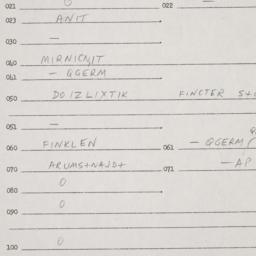 021 0 022 —
023 ANIT
030 —
040 MIRNICNJT
041 — QGERM
050 DOIZLIXTIK FINCTER
051 —
060 FINKLEN 061 — QGERM
070 ARUMS+NAJD+ 071 — AP
080 0
090 0
100 0